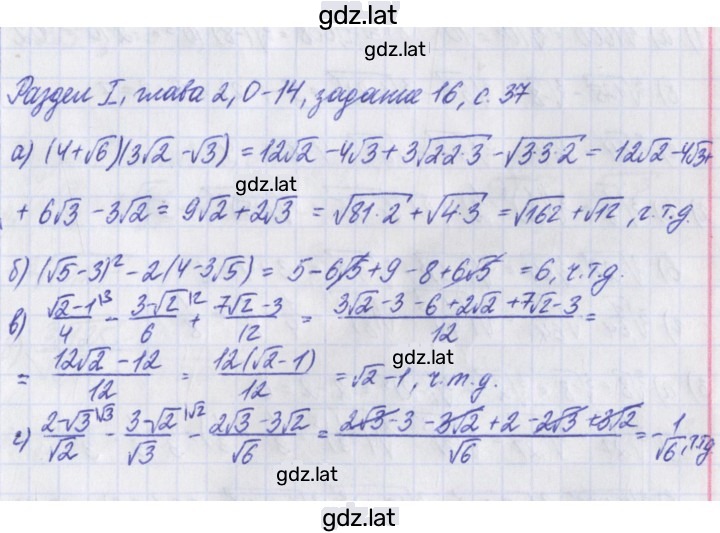 gdz.lat
gdz.lat
Раздел I, глава 2, 0-14, задание 16, с. 37
а) (4+√6)(3√2 -√3) = 12√2 - 4√3 + 3√(2·2·3) - √(3·3·2) = 12√2 - 4√3 +
gdz.lat
+ 6√3 - 3√2 = 9√2 + 2√3 = √(81·2) + √(4·3) = √162 + √12, ч.т.д
б) (√5 - 3)² - 2(4-3√5) = 5 - 6√5 + 9 - 8 + 6√5 = 6, ч.т.д.
в) (√2-1)/4 |3 - (3-√2)/6 |2 + (7√2-3)/12 = (3√2 - 3 - 6 + 2√2 + 7√2 - 3)/12 =
= (12√2 - 12)/12 = 12(√2-1)/12 = √2 - 1, ч.т.д.
gdz.lat
г) (2-√3)/√2 |√3 - (3-√2)/√3 |√2 - (2√3-3√2)/√6 = (2√3 - 3 - 3√2 + 2 - 2√3 + 3√2)/√6 = -1/√6, ч.т.д
gdz.lat
gdz.lat